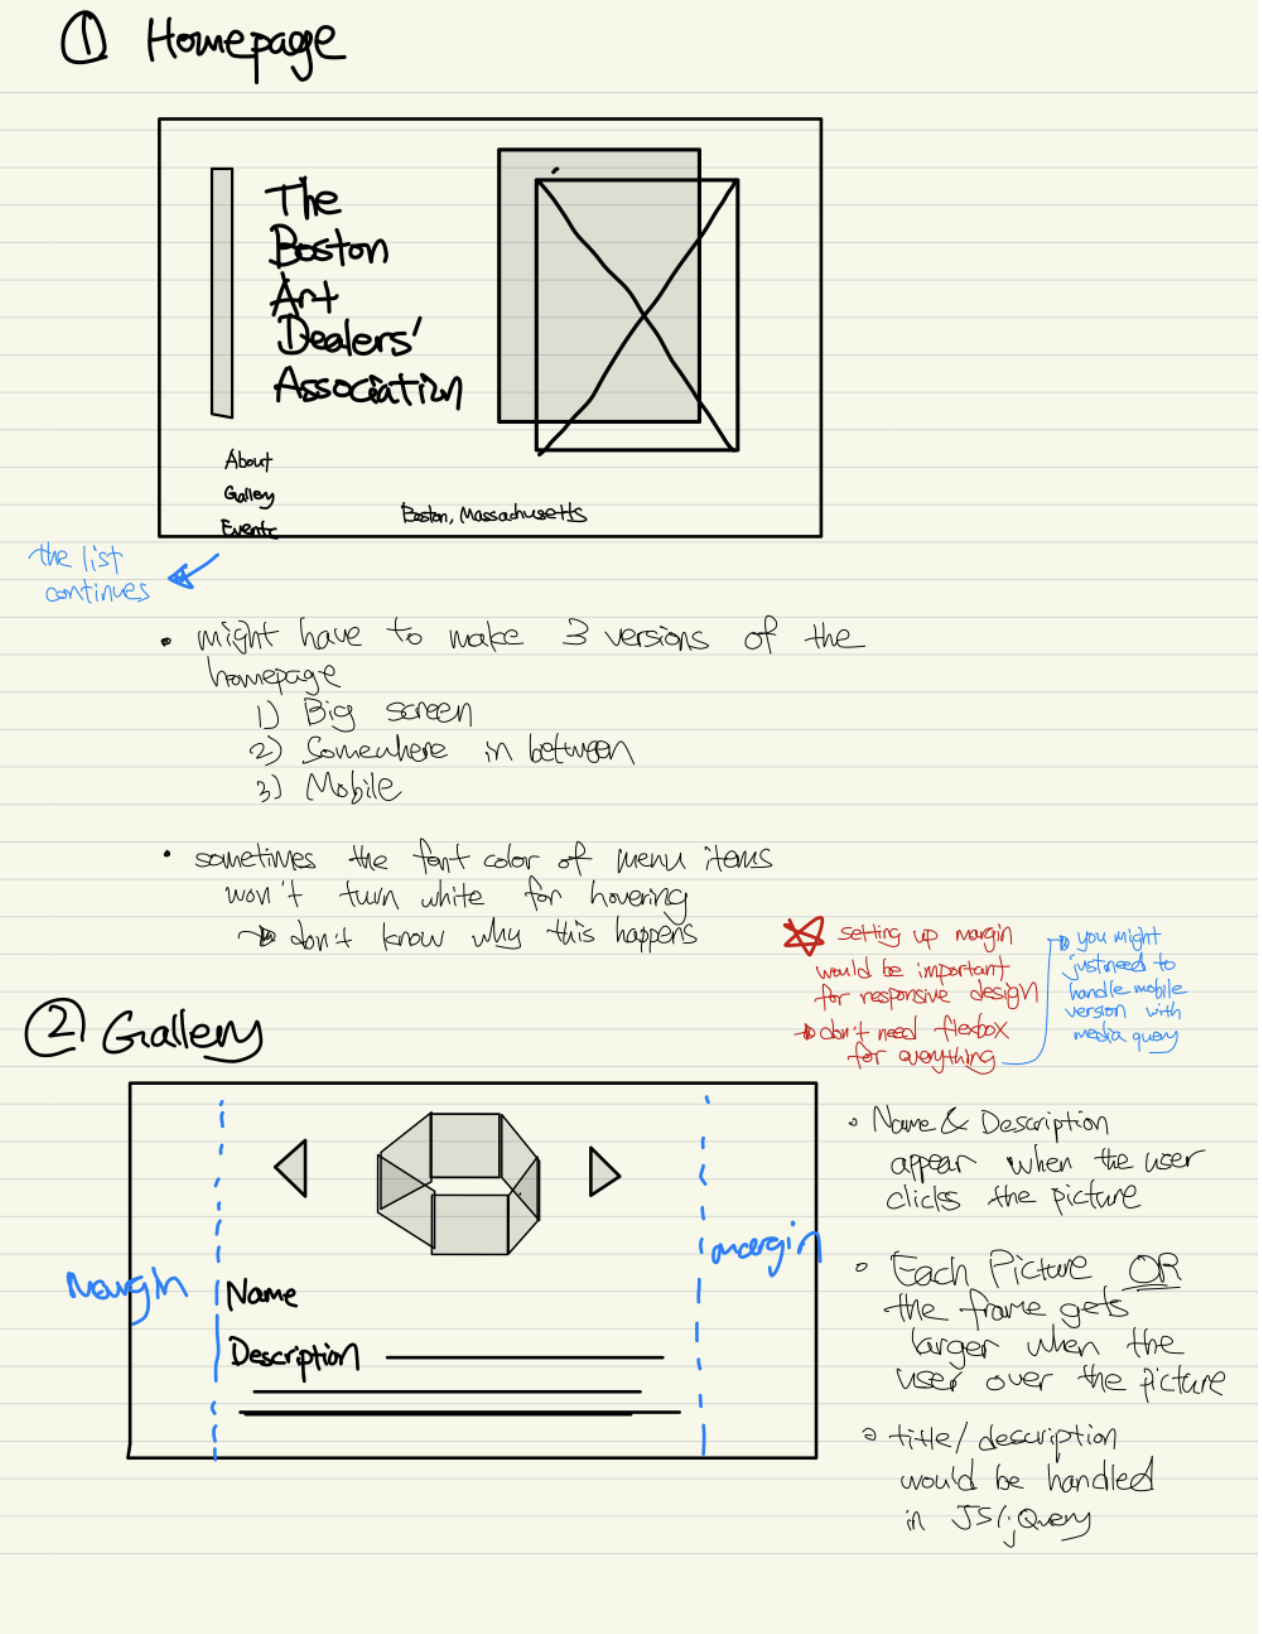 ① Homepage
The
Boston
Art
Dealers'
Association
About
Gallery
Events
Boston, Massachusetts
the list
continues
• might have to make 3 versions of the
homepage
1) Big screen
2) Somewhere in between
3) Mobile
• sometimes the font color of menu items
won't turn white for hovering
→ don't know why this happens
☆ setting up margin
would be important
for responsive design
→ don't need flexbox
for everything
→ you might
just need to
handle mobile
version with
media query
② Gallery
margin
margin
Name
Description
• Name & Description
appear when the user
clicks the picture
• Each Picture OR
the frame gets
larger when the
user over the picture
• title/description
would be handled
in JS/jQuery